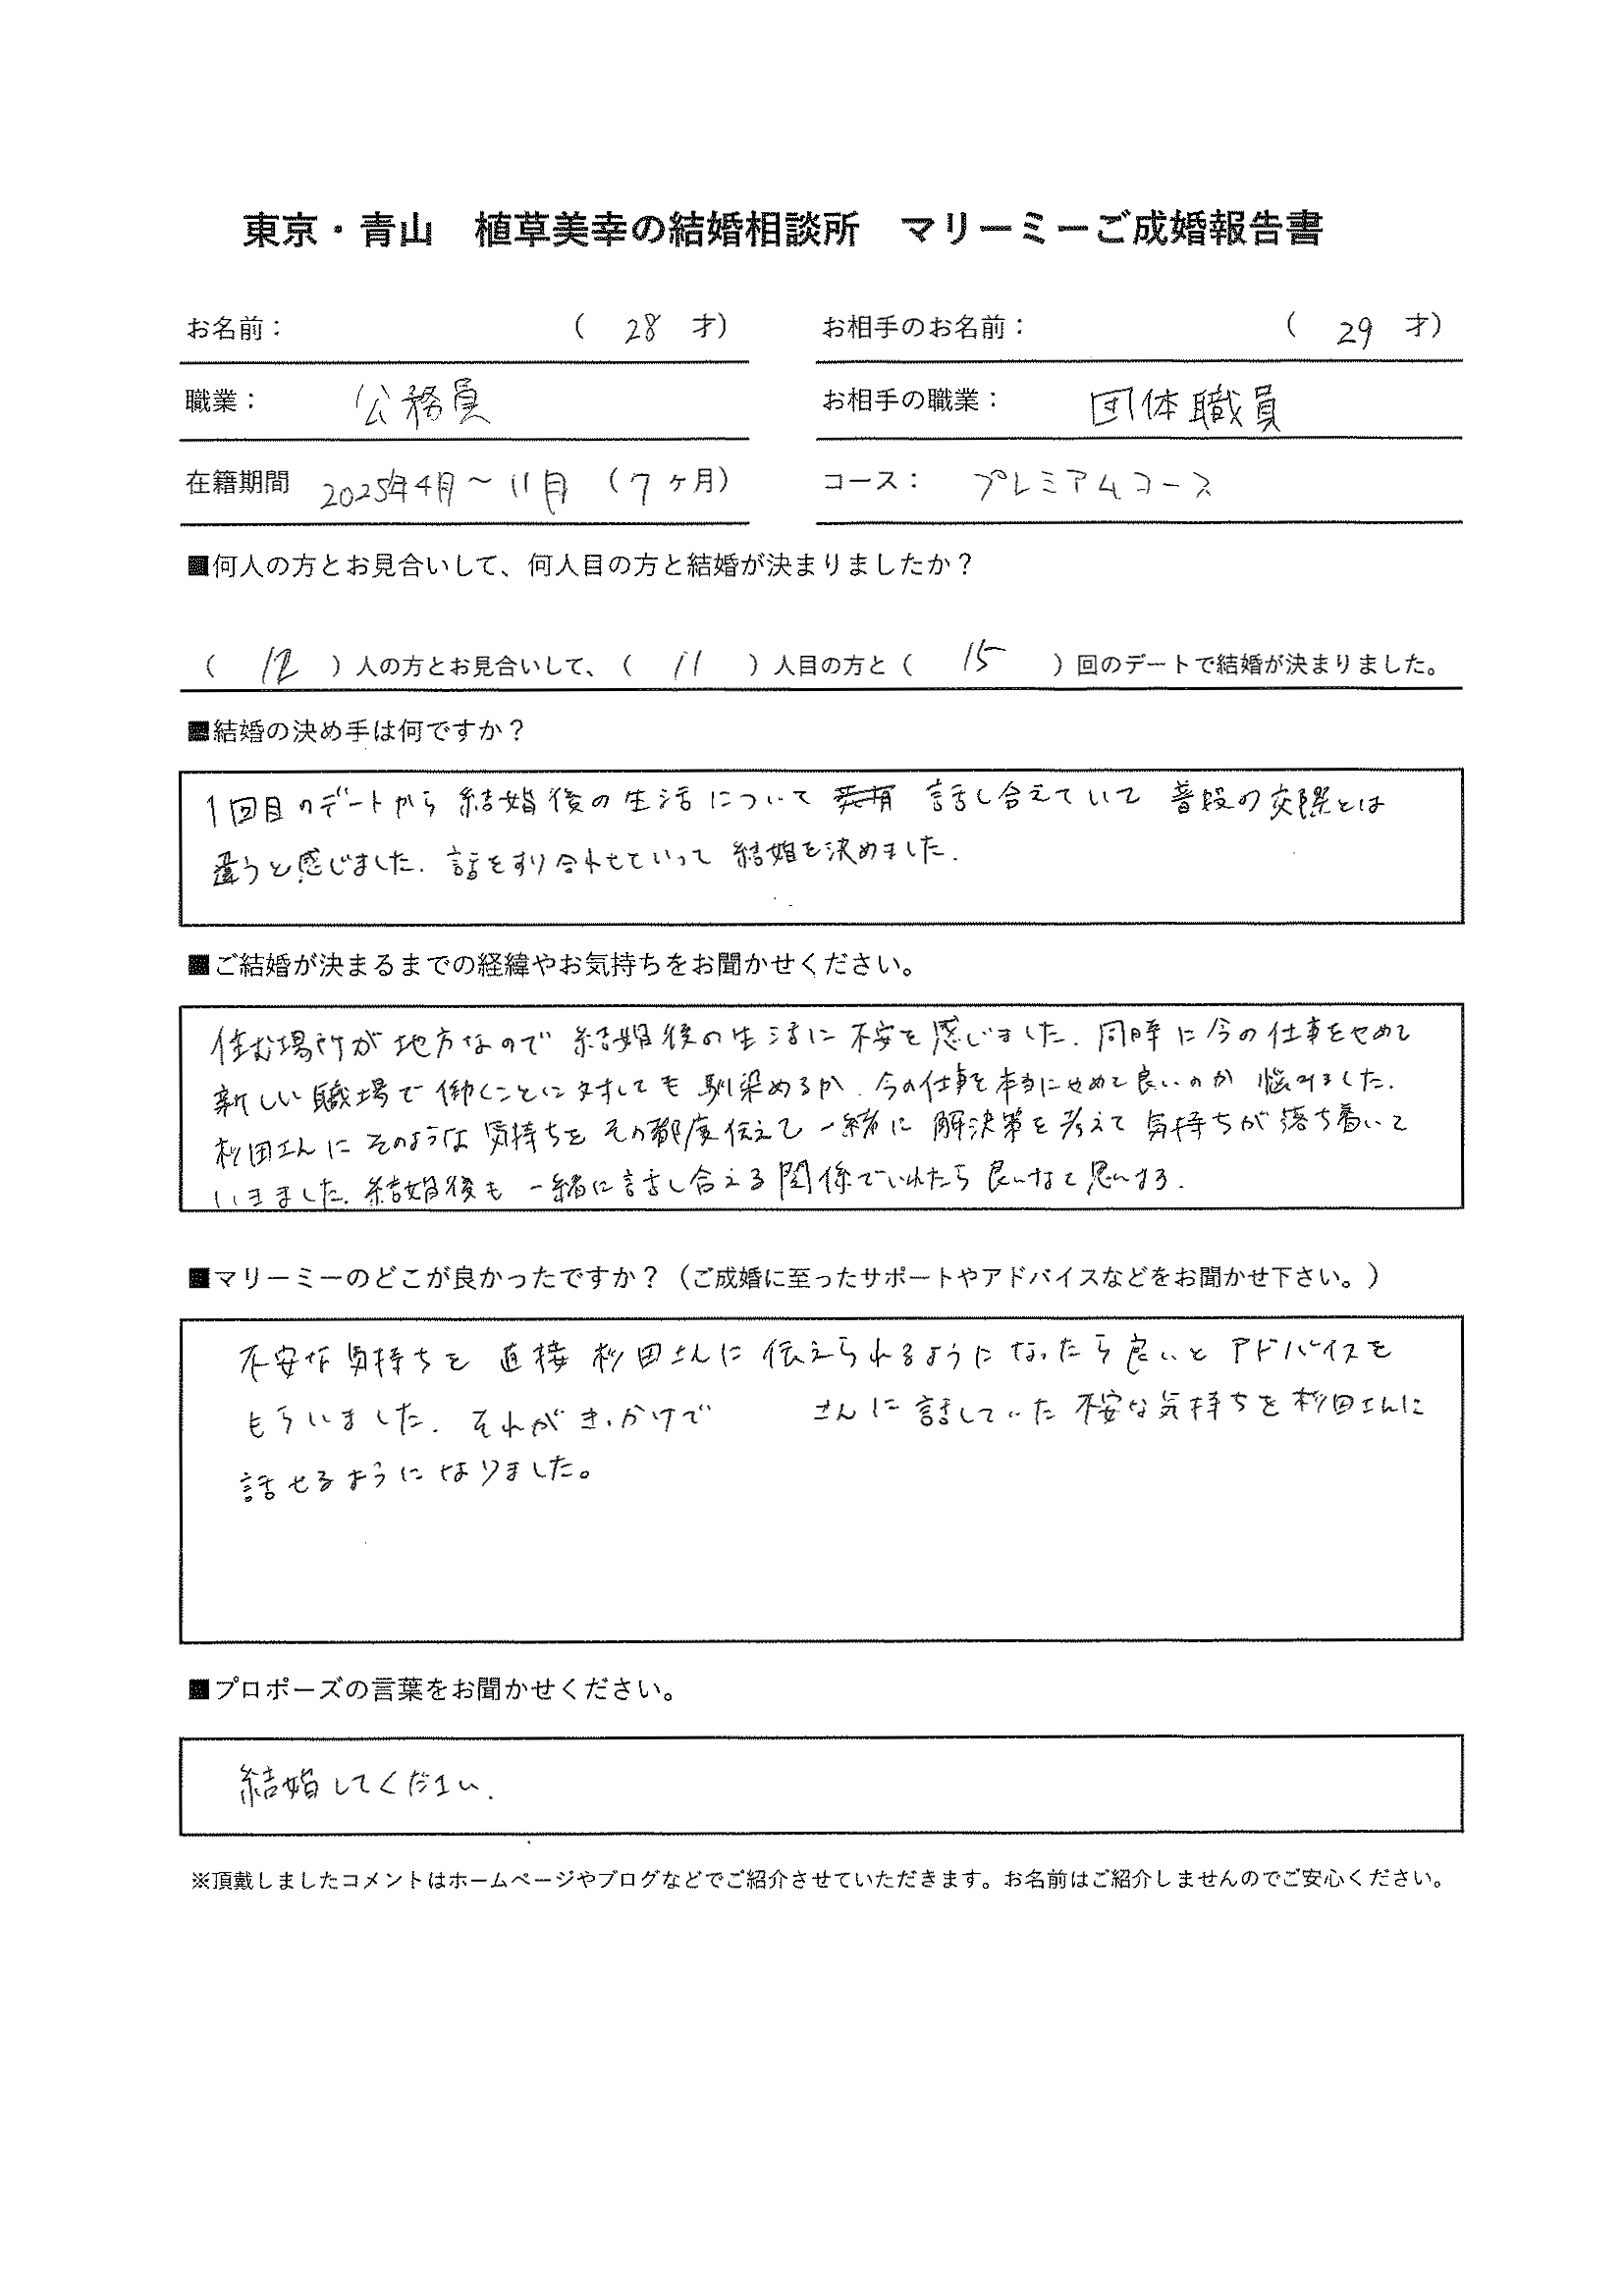 東京・青山　植草美幸の結婚相談所　マリーミーご成婚報告書
お名前：　（ 28 才）　お相手のお名前：　（ 29 才）
職業：　公務員　お相手の職業：　団体職員
在籍期間　2025年4月～11月（7ヶ月）　コース：　プレミアムコース
■何人の方とお見合いして、何人目の方と結婚が決まりましたか？
（ 12 ）人の方とお見合いして、（ 11 ）人目の方と（ 15 ）回のデートで結婚が決まりました。
■結婚の決め手は何ですか？
1回目のデートから結婚後の生活について 話し合えていて 普段の交際とは
違うと感じました. 話をすり合わせていって 結婚を決めました.
■ご結婚が決まるまでの経緯やお気持ちをお聞かせください。
住む場所が地方なので 結婚後の生活に不安を感じました. 同時に今の仕事をやめて
新しい職場で働くことに対しても馴染めるか. 今の仕事を本当にやめて良いのか 悩みました.
杉田さんにそのような気持ちをその都度伝えて一緒に解決策を考えて気持ちが落ち着いて
いきました. 結婚後も一緒に話し合える関係でいれたら良いなと思います.
■マリーミーのどこが良かったですか？（ご成婚に至ったサポートやアドバイスなどをお聞かせ下さい。）
不安な気持ちを 直接 杉田さんに 伝えられるようになったら良いとアドバイスを
もらいました. それがきっかけで　さんに話していた不安な気持ちを杉田さんに
話せるようになりました。
■プロポーズの言葉をお聞かせください。
結婚してください.
※頂戴しましたコメントはホームページやブログなどでご紹介させていただきます。お名前はご紹介しませんのでご安心ください。